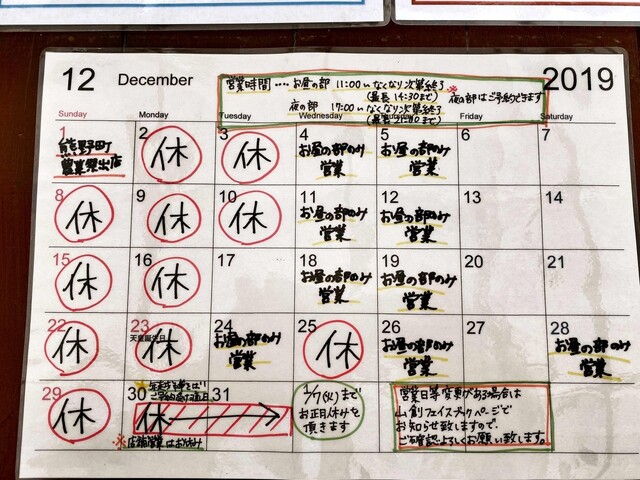 12 December 2019
営業時間・・・・お昼の部 11:00〜なくなり次第終了
(最長14:30まで)
夜の部 17:00〜なくなり次第終了
(最長21:00まで)
※夜の部はご予約できます
Sunday Monday Tuesday Wednesday Friday Saturday
1 2 3 4 5 6 7
熊野町
農業祭出店
休 休
お昼の部のみ
営業
お昼の部のみ
営業
8 9 10 11 12 13 14
休 休 休
お昼の部のみ
営業
お昼の部のみ
営業
15 16 17 18 19 20 21
休 休
お昼の部のみ
営業
お昼の部のみ
営業
22 23 24 25 26 27 28
天皇誕生日
休 休
お昼の部のみ
営業
休
お昼の部のみ
営業
お昼の部のみ
営業
29 30 31
休
休
※店舗営業はお休み
1/7(火)まで
お正月休みを
頂きます
営業日等変更がある場合は
山創フェイスブックページで
お知らせ致しますので、
ご確認よろしくお願い致します。